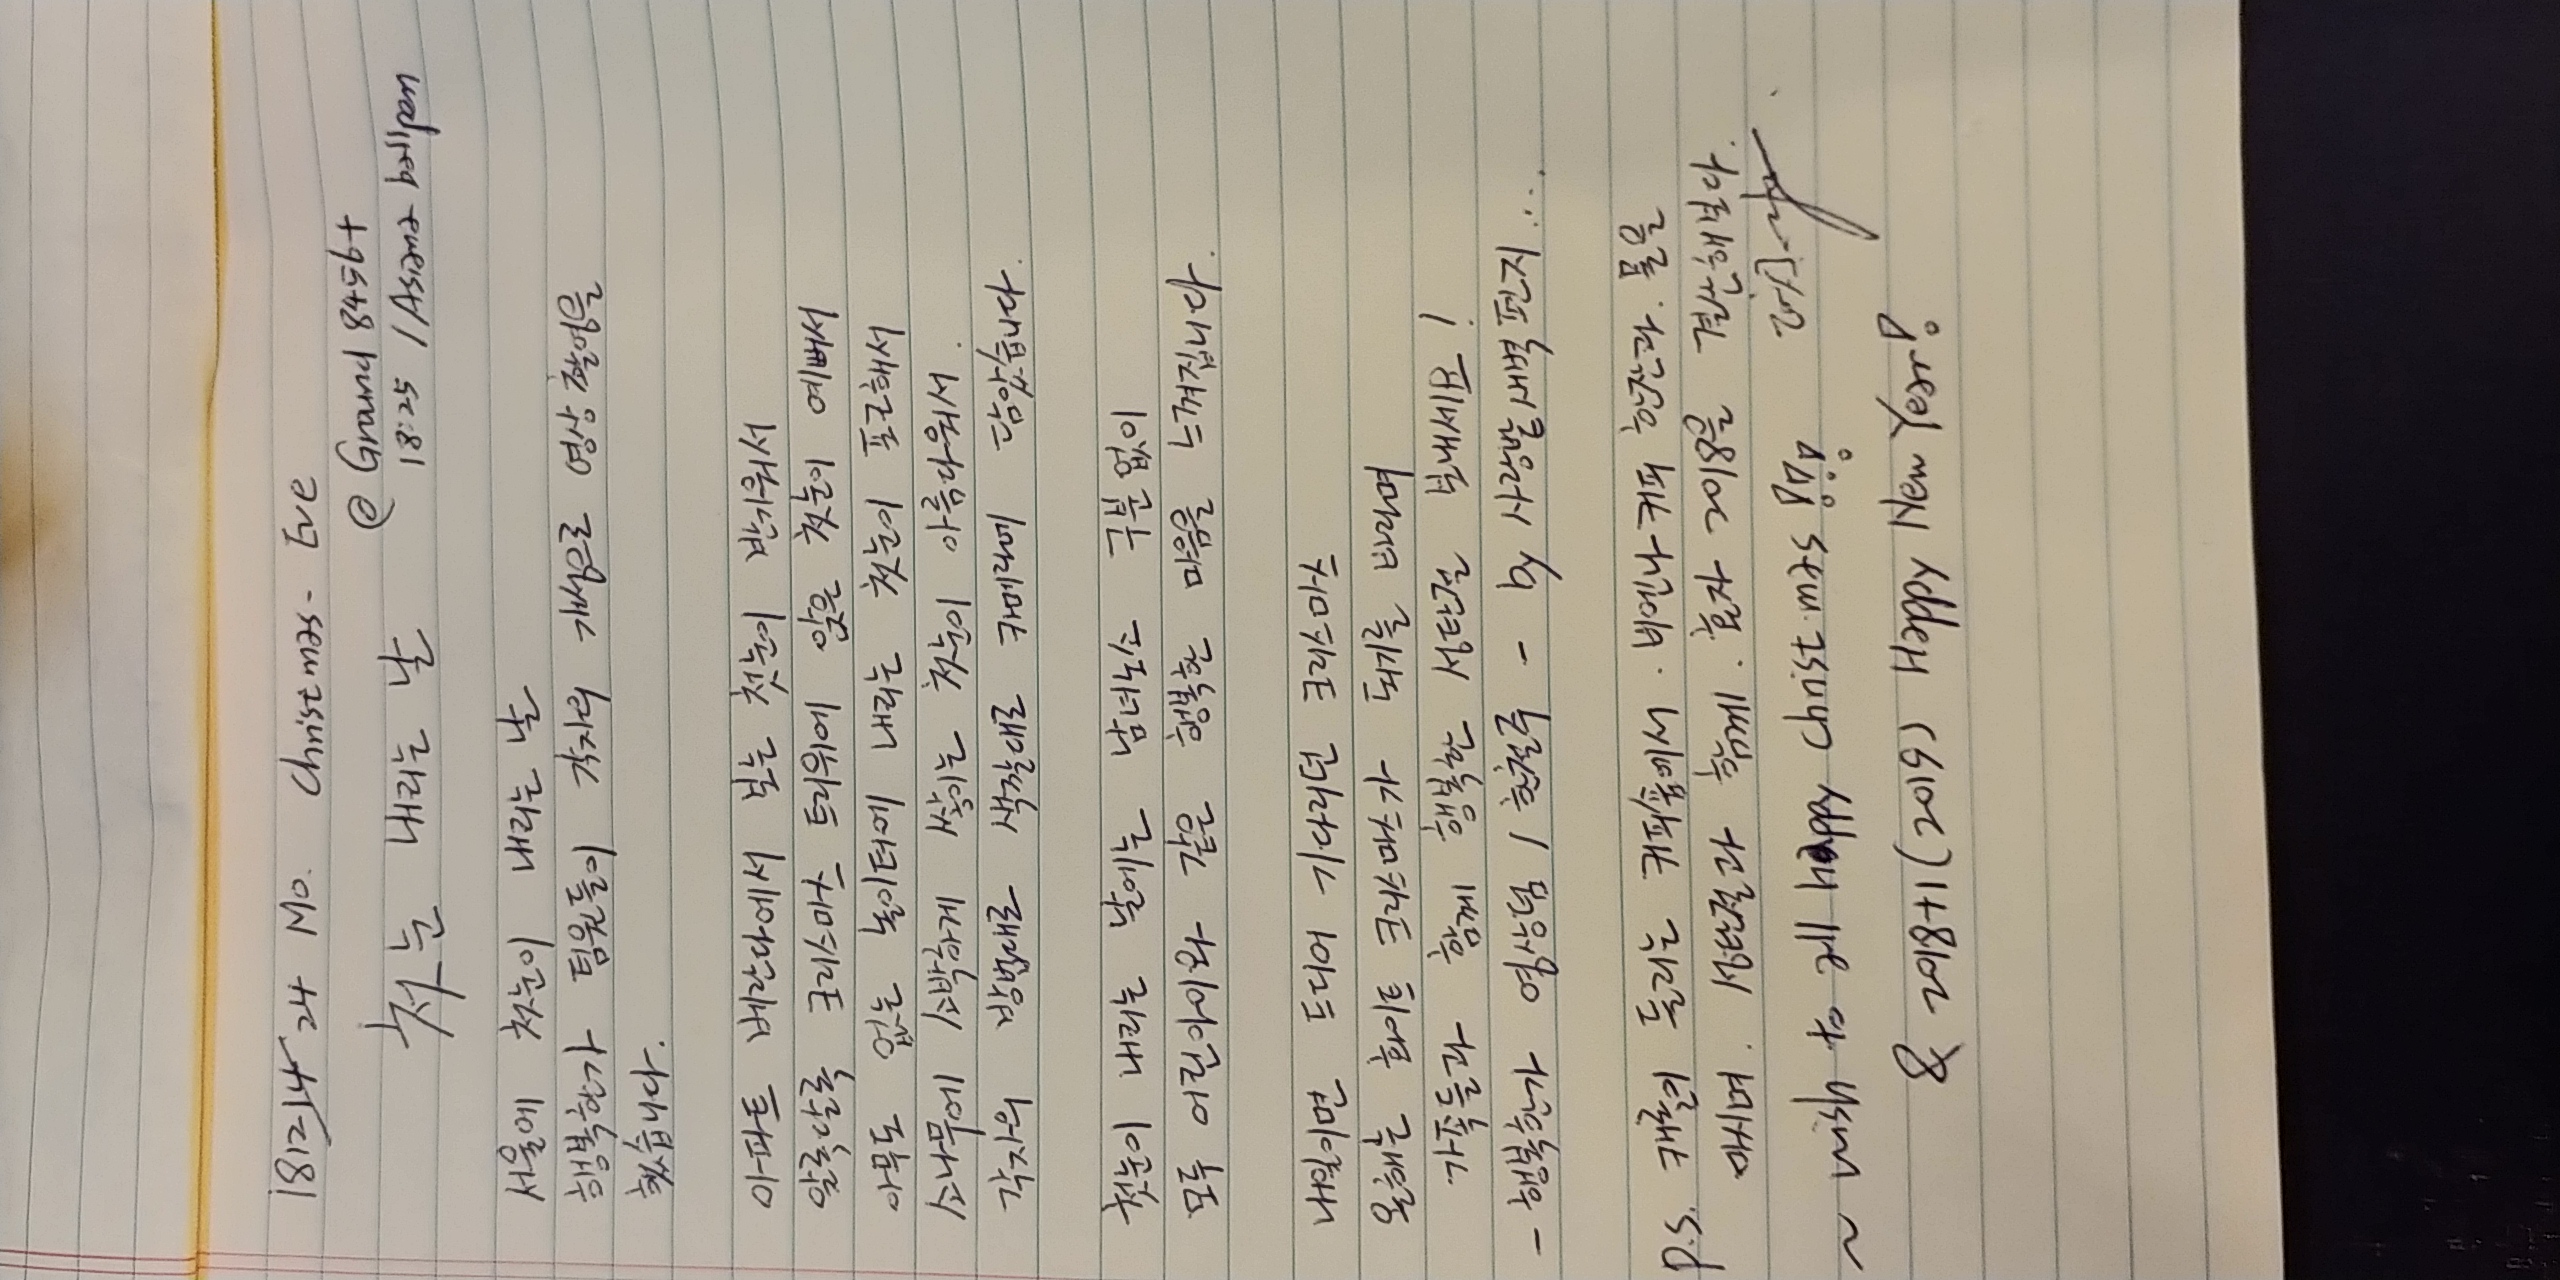 181214 24 Mo. Christmas- Eve
@ Ground 8456+
첫눈 내리는 날
18:25 / Asiana ballpen
서울에 첫눈이 내리는 날
행복한가 팀원들이 각자의 개성으로 영상촬영을
했습니다.
아파트 베란다에서 보는 첫눈이 반가워서
알록달록 크리스마스 트리위에 앉은 첫눈이 예뻐서
아무도 없는 놀이터에 내리는 첫눈이 포근해서
소나무에 소박하게 쌓이는 첫눈이 아름다워서.
각자의 방법대로 색깔대로 카메라에 담았습니다.
첫눈이 내리는 날에는 남녀노소 구분없이
모두 어린아이와 같은 행복한 마음을 느껴집니다.
내일이면 드디어 기다리던 크리스마스
올해는 화이트 크리스마스가 되기를 바라며
가족들과 함께 행복한 성탄절 보내세요!
- 행복한가 영상팀 / 한철주 - by 사랑밭새벽편지...
p.s. 캐롤이 들리는 커피숍에서. 비엔나커피 한잔과. 물을
마시며. 성탄절과 함께. 혼자 2018을 결산해보다.
~ wish to all happy christmas!!!
& 2018+1(2019) Happy New Year!